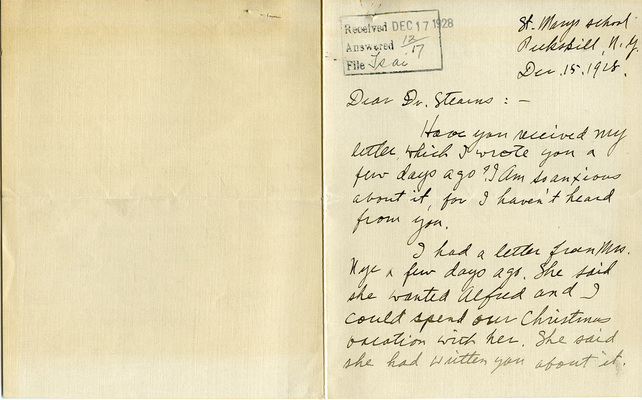 Received DEC 17 1928
Answered 12/17
File Tsai
St. Mary's School
Peekskill, N.Y.
Dec. 15. 1928.
Dear Dr. Stearns : —
Have you received my
letter, which I wrote you a
few days ago? I am so anxious
about it, for I haven't heard
from you.
I had a letter from Mrs.
Nye a few days ago. She said
she wanted Alfred and I
could spend our Christmas
vacation with her. She said
she had written you about it.